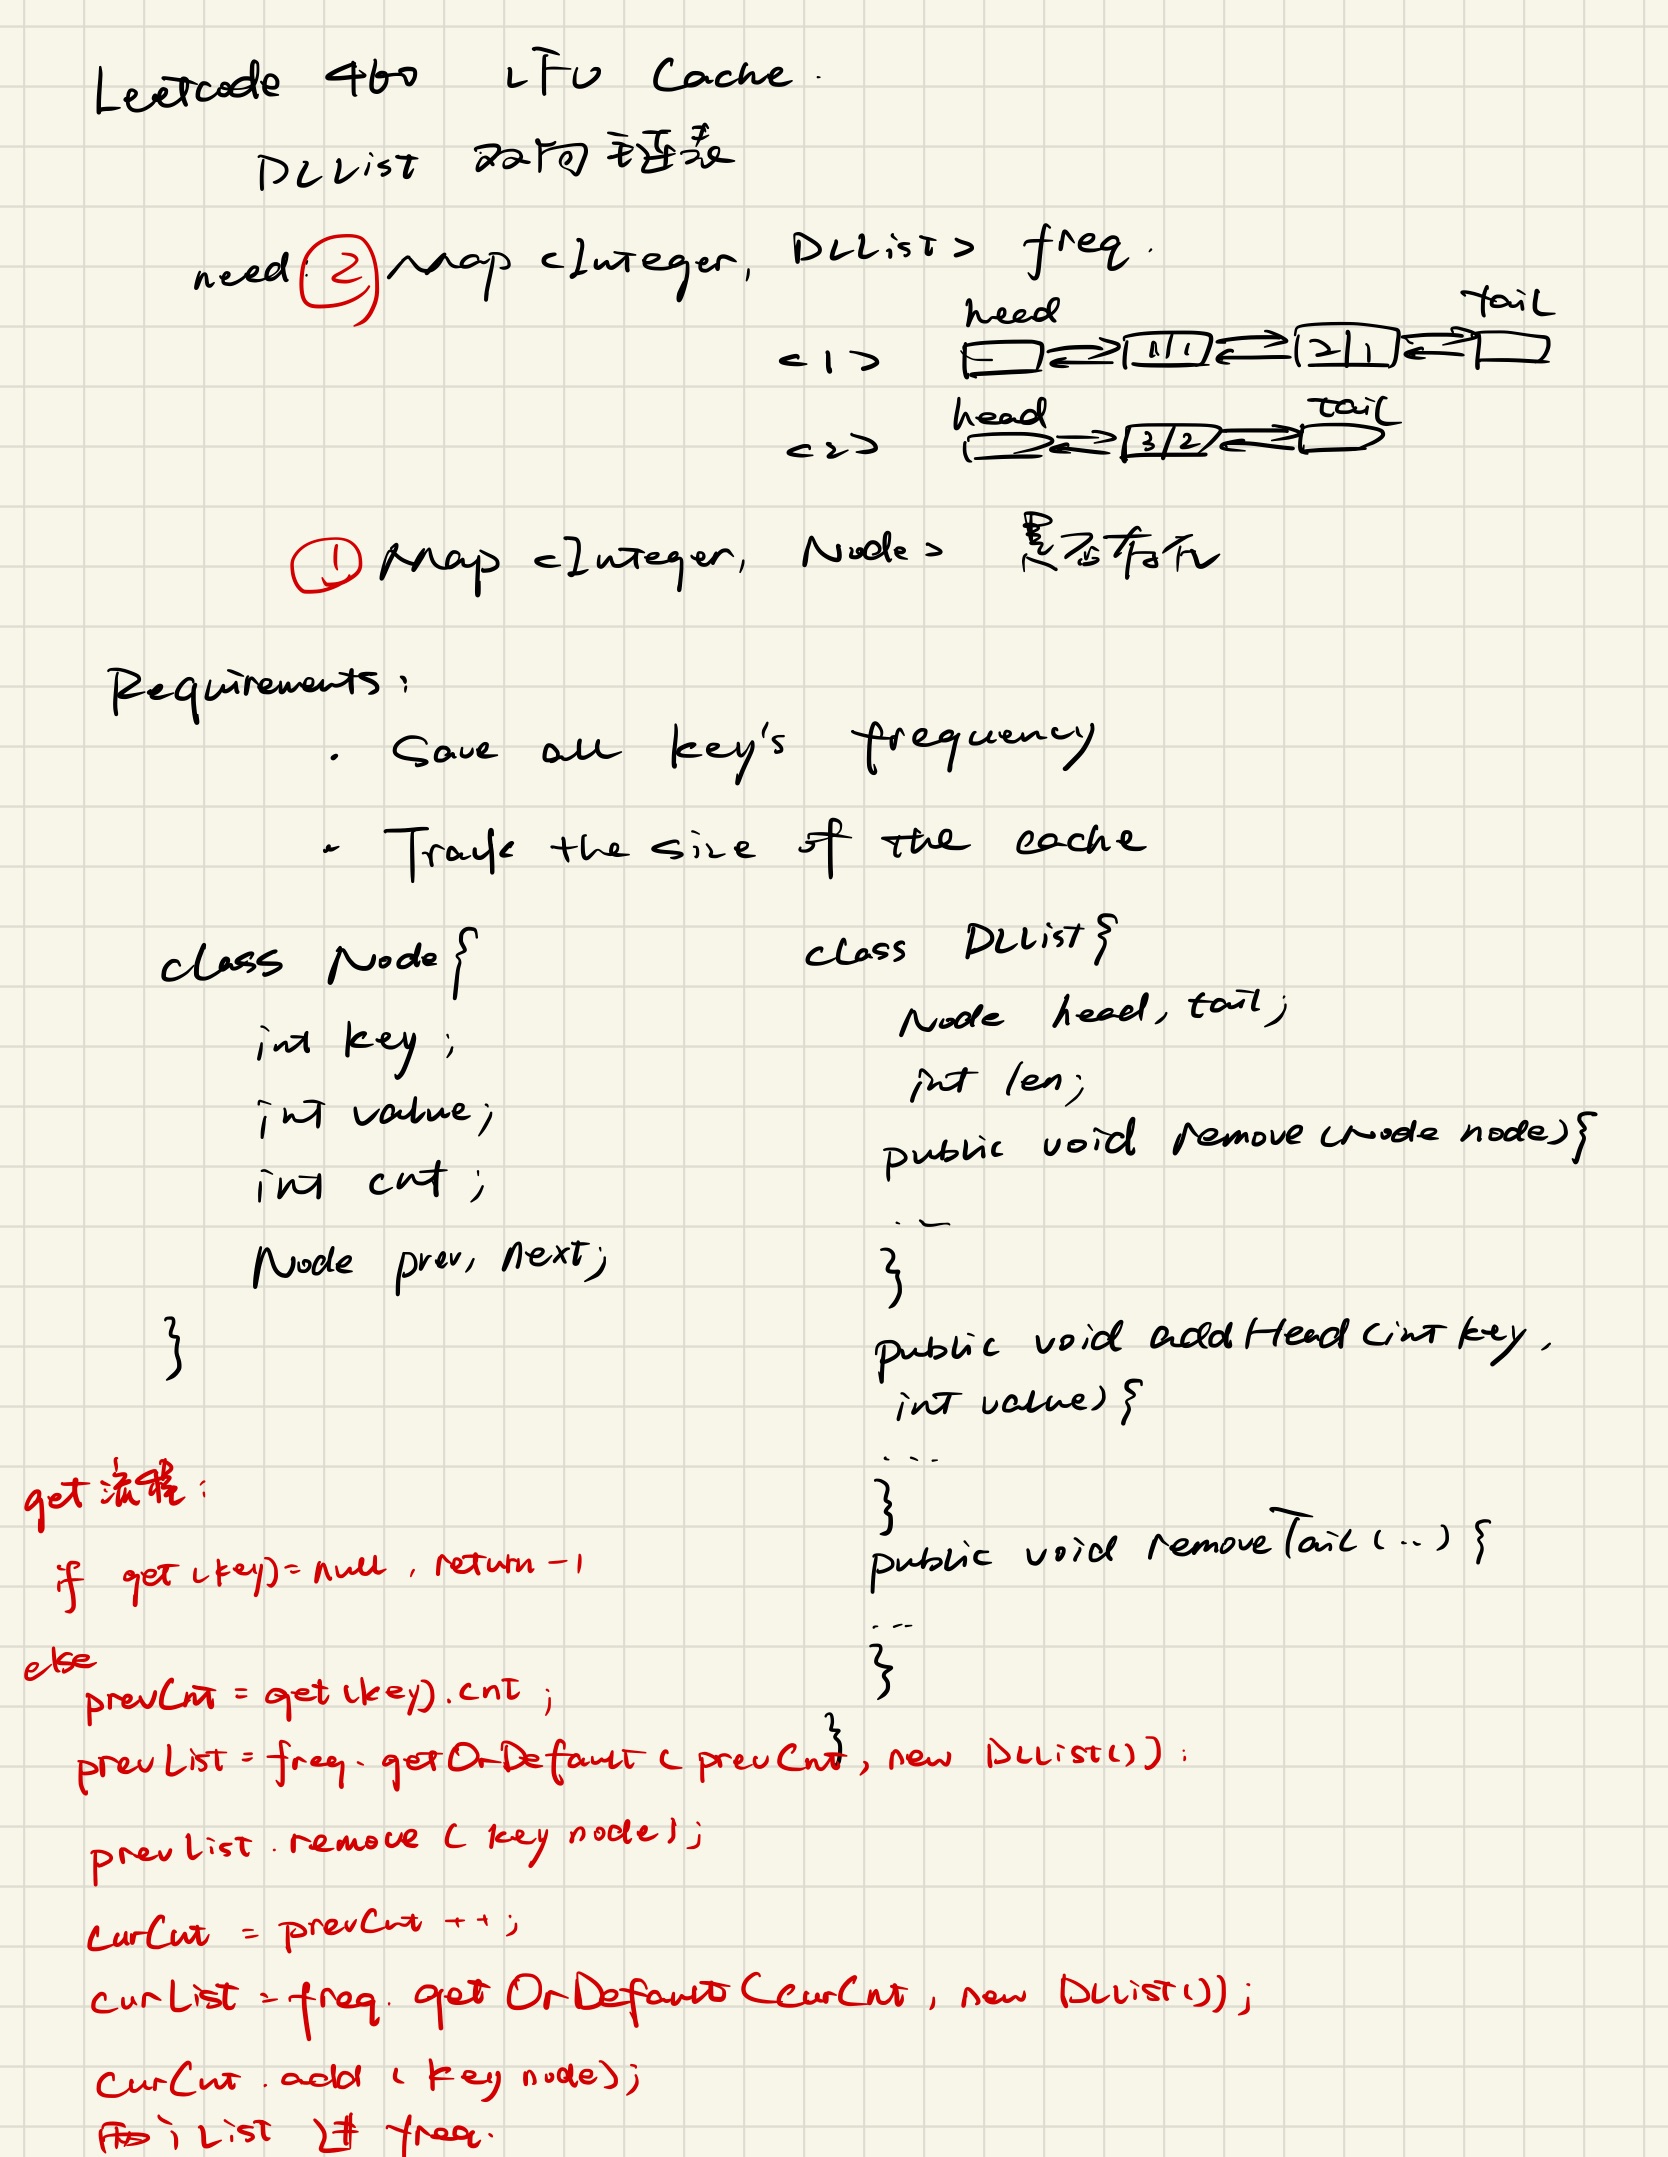 Leetcode 460 LFU Cache.
DLList 双向链表
need: ② Map <Integer, DLList> freq.
head tail
<1> 1/1 2|1
head tail
<2> 3/2
① Map <Integer, Node> 是否存在
Requirements:
· Save all key's frequency
· Track the size of the cache
class Node{
int key;
int value;
int cnt;
Node prev, next;
}
class DLList{
Node head, tail;
int len;
public void remove (Node node){
...
}
public void addHead (int key,
int value) {
...
}
public void removeTail (...) {
...
}
}
get流程:
if get(key)=null, return -1
else
prevCnt = get(key).cnt;
prevList = freq.getOrDefault (prevCnt, new DLList());
prevList.remove (key node);
curCnt = prevCnt ++;
curList = freq.getOrDefault (curCnt, new DLList());
curCnt.add (key node);
List 进 freq.